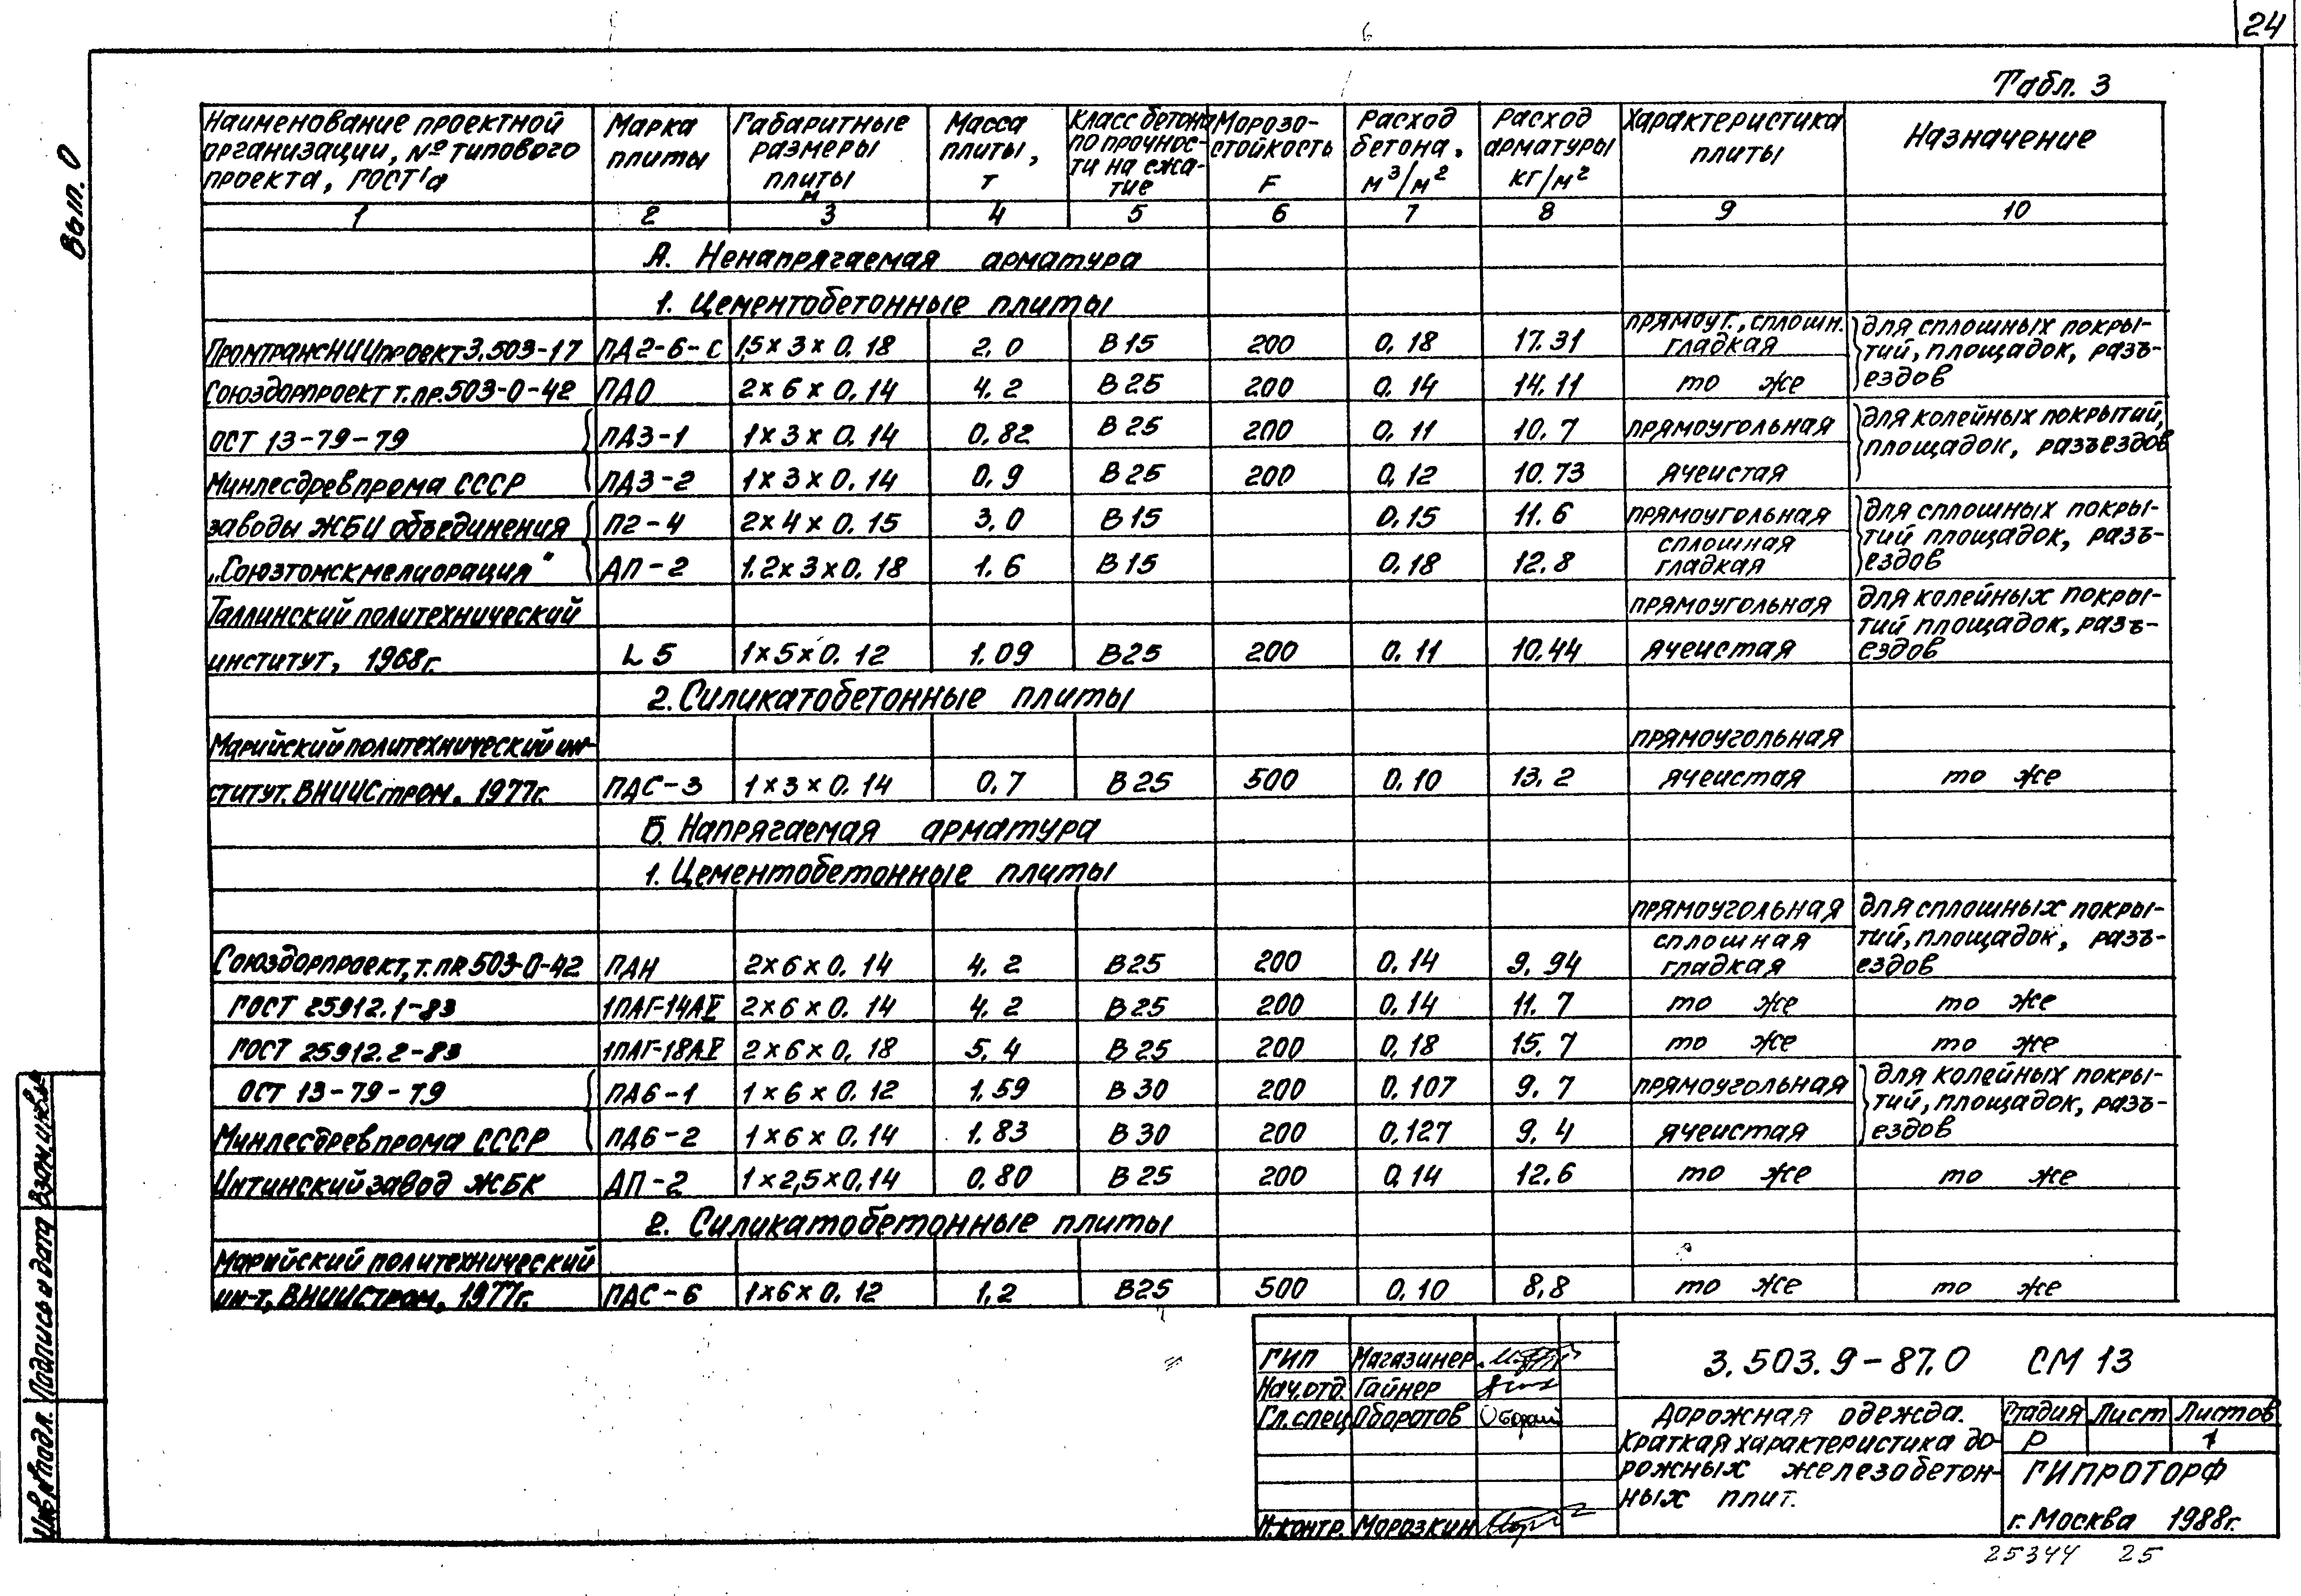 24
Табл. 3
Вып. 0
Наименование проектной организации, № типового проекта, ГОСТ'а | Марка плиты | Габаритные размеры плиты м | Масса плиты, т | Класс бетона по прочности на сжатие | Морозостойкость F | Расход бетона, м³/м² | Расход арматуры кг/м² | Характеристика плиты | Назначение
1 2 3 4 5 6 7 8 9 10
А. Ненапрягаемая арматура
1. Цементобетонные плиты
ПромтрансНИИпроект 3.503-17 ПД2-6-С 1,5×3×0.18 2.0 В15 200 0.18 17.31 прямоуг., сплошн. гладкая для сплошных покрытий, площадок, разъездов
Союздорпроект т.пр.503-0-42 ПДО 2×6×0.14 4.2 В25 200 0.14 14.11 то же
ОСТ 13-79-79 ПД3-1 1×3×0.14 0.82 В25 200 0.11 10.7 прямоугольная для колейных покрытий, площадок, разъездов
Минлесдревпрома СССР ПД3-2 1×3×0.14 0.9 В25 200 0.12 10.73 ячеистая
заводы ЖБИ объединения П2-4 2×4×0.15 3.0 В15 0.15 11.6 прямоугольная для сплошных покрытий площадок, разъездов
„Союзтомскмелиорация" АП-2 1.2×3×0.18 1.6 В15 0.18 12.8 сплошная гладкая
Таллинский политехнический прямоугольная для колейных покрытий площадок, разъездов
институт, 1968г. L 5 1×5×0.12 1.09 В25 200 0.11 10.44 ячеистая
2. Силикатобетонные плиты
Марийский политехнический ин- прямоугольная
ститут. ВНИИСтром. 1977г. ПДС-3 1×3×0.14 0.7 В25 500 0.10 13.2 ячеистая то же
Б. Напрягаемая арматура
1. Цементобетонные плиты
прямоугольная для сплошных покрытий, площадок, разъездов
Союздорпроект, т.пр 503-0-42 ПДН 2×6×0.14 4.2 В25 200 0.14 9.94 сплошная гладкая
ГОСТ 25912.1-83 1ПАГ-14АV 2×6×0.14 4.2 В25 200 0.14 11.7 то же то же
ГОСТ 25912.2-83 1ПАГ-18АV 2×6×0.18 5.4 В25 200 0.18 15.7 то же то же
ОСТ 13-79-79 ПД6-1 1×6×0.12 1.59 В30 200 0.107 9.7 прямоугольная для колейных покрытий, площадок, разъездов
Минлесдревпрома СССР ПД6-2 1×6×0.14 1.83 В30 200 0.127 9.4 ячеистая
Интинский завод ЖБК АП-2 1×2,5×0,14 0.80 В25 200 0.14 12.6 то же то же
2. Силикатобетонные плиты
Марийский политехнический
ин-т, ВНИИСтром, 1977г. ПДС-6 1×6×0.12 1.2 В25 500 0.10 8,8 то же то же
ГИП Магазинер
Нач.отд. Гайнер
Гл.спец Оборотов
Н.контр. Морозкин
3.503.9-87.0 СМ 13
Дорожная одежда.
Краткая характеристика до-
рожных железобетон-
ных плит.
Стадия Лист Листов
Р 1
ГИПРОТОРФ
г. Москва 1988г.
25344 25
Взам.инв.№
Подпись и дата
Инв.№ подл.